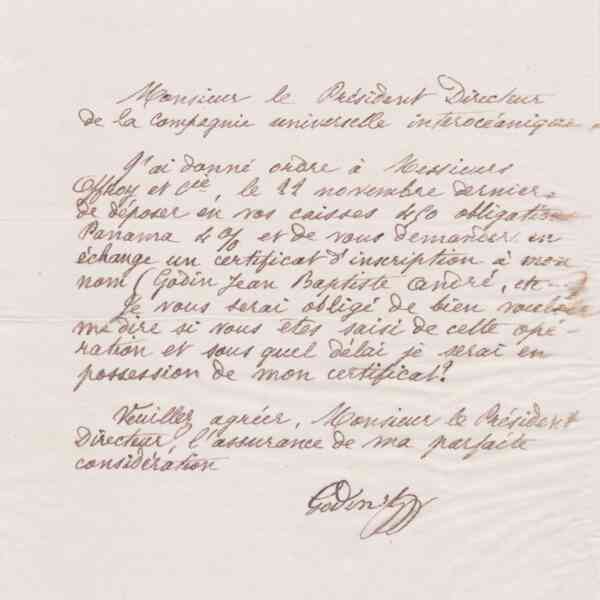 Monsieur le Président Directeur
de la compagnie universelle interocéanique.
J'ai donné ordre à Messieurs
Offroy et Cie, le 22 novembre dernier,
de déposer en vos caisses 450 obligations
Panama 4 % et de vous demander en
échange un certificat d'inscription à mon
nom (Godin Jean Baptiste André, etc
Je vous serai obligé de bien vouloir
me dire si vous êtes saisi de cette opé-
ration et sous quel délai je serai en
possession de mon certificat?
Veuillez agréer, Monsieur le Président
Directeur, l'assurance de ma parfaite
considération
Godin